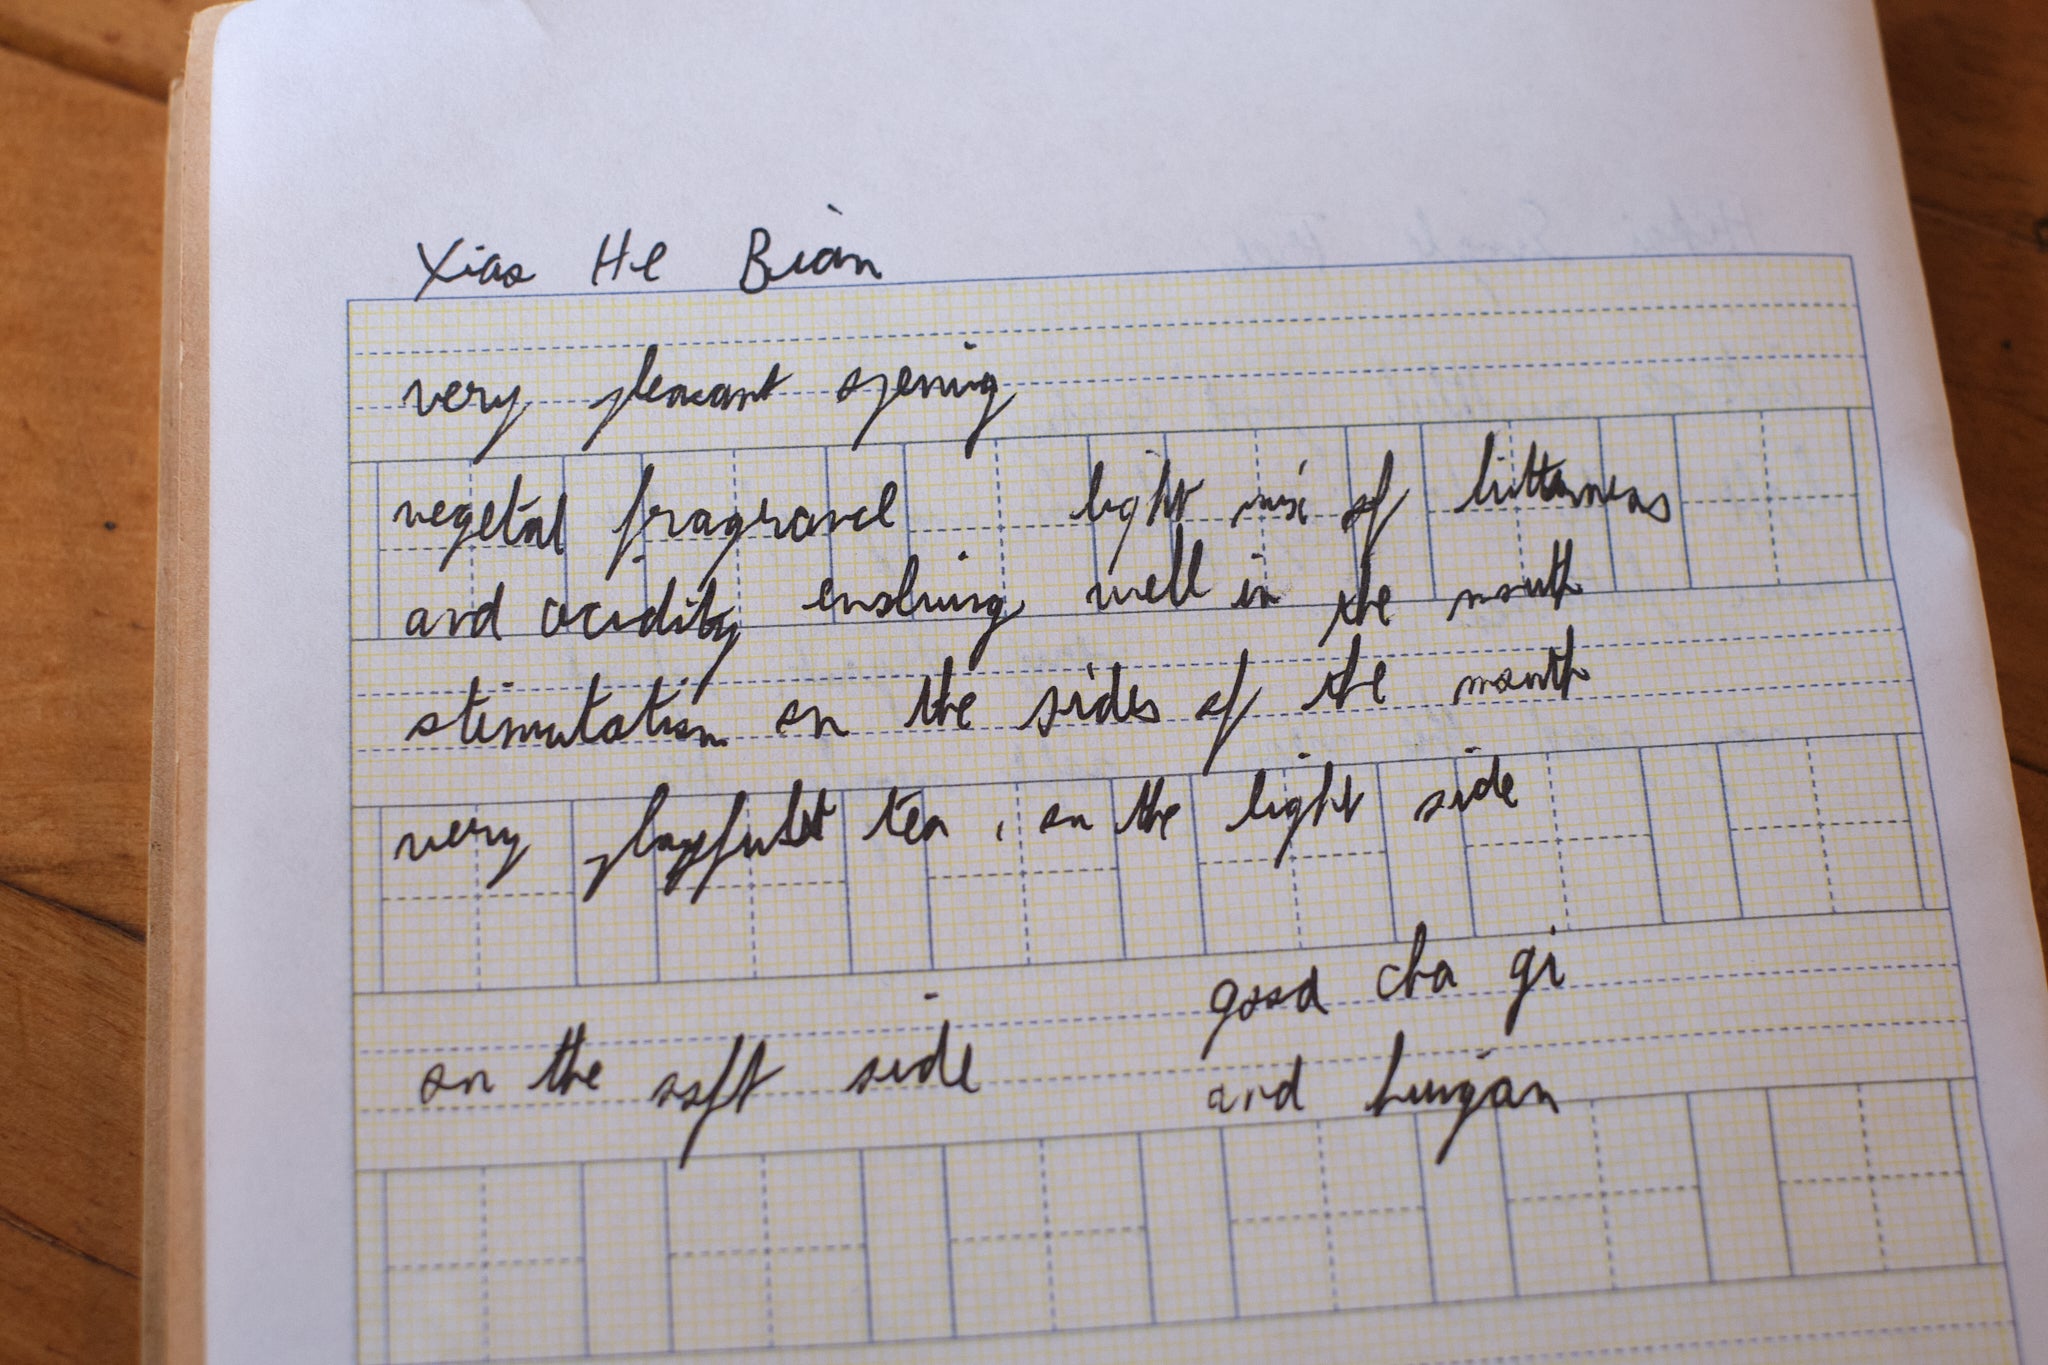 Xiao He Bian
very pleasant opening
vegetal fragrance light mix of bitterness
and acidity evolving well in the mouth
stimulation on the sides of the mouth
very playful tea, on the light side
on the soft side
good cha qi
and huigan